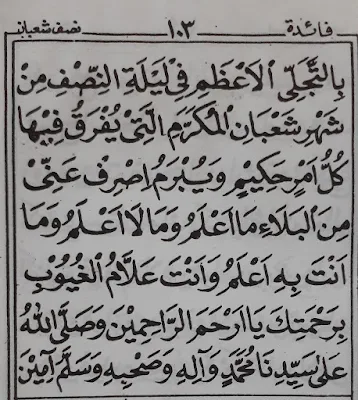 فائدة ١٠٣ نصف شعبان
بِالتَّجَلِّي الْاَعْظَمِ فِي لَيْلَةِ النِّصْفِ مِنْ
شَهْرِ شَعْبَانِ الْمُكَرَّمِ الَّتِيْ يُفْرَقُ فِيْهَا
كُلُّ اَمْرٍ حَكِيْمٍ وَيُبْرَمُ اِصْرِفْ عَنِّيْ
مِنَ الْبَلَاءِ مَا اَعْلَمُ وَمَا لَا اَعْلَمُ وَمَا
اَنْتَ بِهِ اَعْلَمُ وَاَنْتَ عَلَّامُ الْغُيُوْبِ
بِرَحْمَتِكَ يَا اَرْحَمَ الرَّاحِمِيْنَ وَصَلَّى اللهُ
عَلَى سَيِّدِنَا مُحَمَّدٍ وَآلِهِ وَصَحْبِهِ وَسَلَّمَ آمِيْنَ